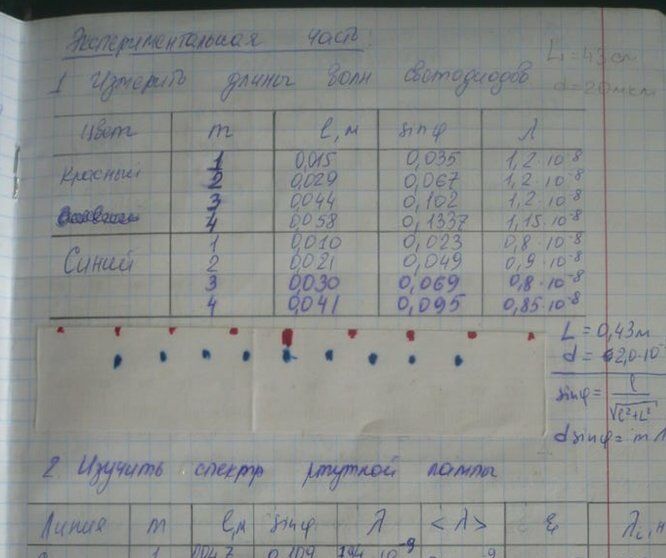 Экспериментальная часть:
L = 43 см
1 Измерить длины волн светодиодов
d = 20 мкм
Цвет m l, м sin φ λ
Красный 1 0,015 0,035 1,2·10⁻⁸
2 0,029 0,067 1,2·10⁻⁸
3 0,044 0,102 1,2·10⁻⁸
4 0,058 0,1337 1,15·10⁻⁸
Синий 1 0,010 0,023 0,8·10⁻⁸
2 0,021 0,049 0,9·10⁻⁸
3 0,030 0,069 0,8·10⁻⁸
4 0,041 0,095 0,85·10⁻⁸
L = 0,43 м
d = 2,0·10⁻
sin φ = l / √(l²+L²)
d sin φ = m λ
2 Изучить спектр ртутной лампы
Линия m l, м sin φ λ <λ> ξ
1 0,047 0,109